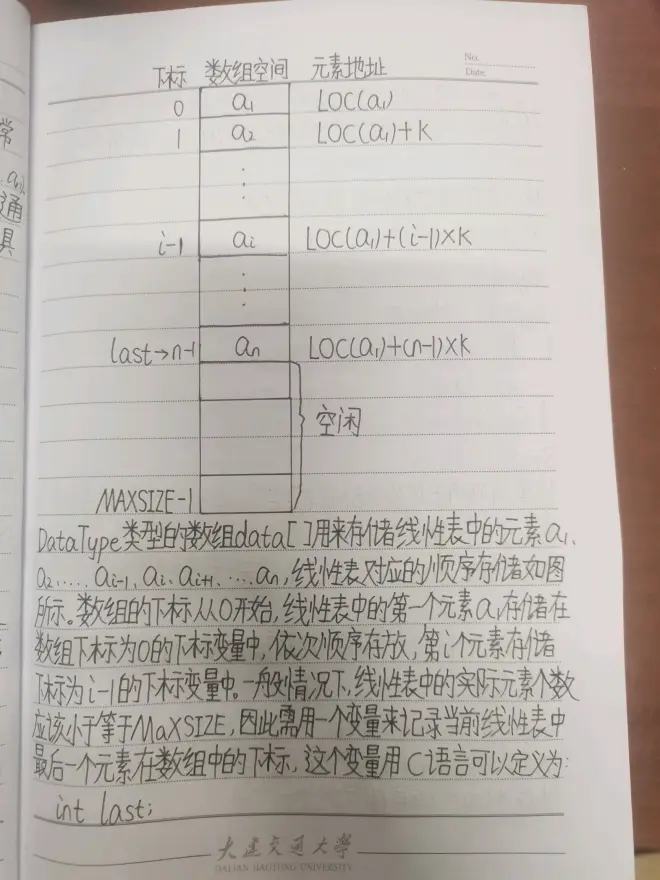 No.
Date.
下标 数组空间 元素地址
0 a₁ LOC(a₁)
1 a₂ LOC(a₁)+k
⋮
i-1 aᵢ LOC(a₁)+(i-1)×k
⋮
last→n-1 aₙ LOC(a₁)+(n-1)×k
空闲
MAXSIZE-1
DataType类型的数组data[ ]用来存储线性表中的元素a₁、
a₂……aᵢ₋₁、aᵢ、aᵢ₊₁、…aₙ,线性表对应的顺序存储如图
所示。数组的下标从0开始,线性表中的第一个元素a₁存储在
数组下标为0的下标变量中,依次顺序存放,第i个元素存储
下标为i-1的下标变量中。一般情况下,线性表中的实际元素个数
应该小于等于MaXSIZE,因此需用一个变量来记录当前线性表中
最后一个元素在数组中的下标,这个变量用C语言可以定义为:
int last;
大连交通大学
DALIAN JIAOTONG UNIVERSITY
常
aₙ),
通
具